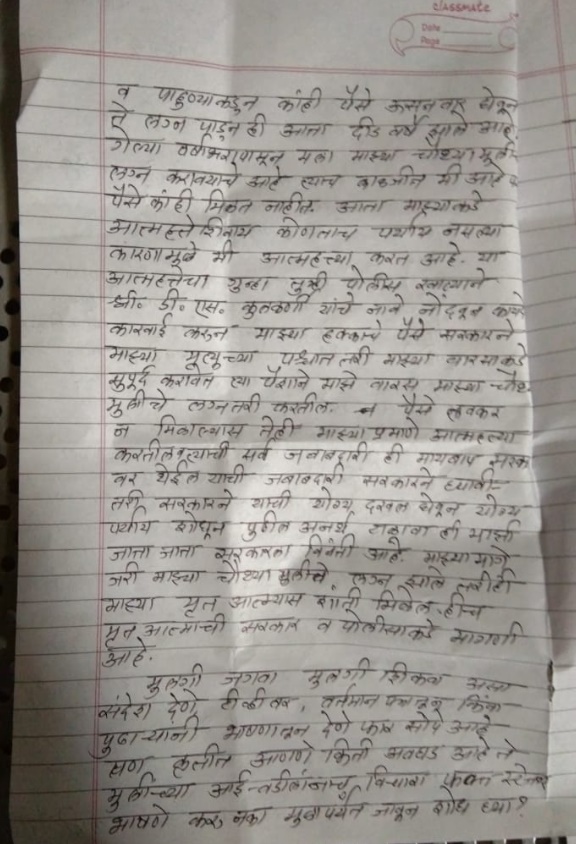 classmate
Date
Page
व पाहुण्याकडून कांही पैसे ऊसनवार घेवून
ते लग्न पाडून ही आता दीड वर्षे झाले आहे.
गेल्या वर्षीभरापासून मला माझ्या चौथ्या मुली
लग्न करावयाचे आहे त्याच काळजीत मी आहे
पैसे कांही मिळत नाहीत. आता माझ्याकडे
आत्महत्ते शिवाय कोणताच पर्याय नसल्या
कारणामुळे मी आत्महत्या करत आहे. या
आत्महत्तेचा गुन्हा तुम्ही पोलीस खात्याने
श्री. डी. एस. कुलकर्णी यांचे नावे नोंदवून
कारवाई करुन माझ्या हक्काचे पैसे सरकारने
माझ्या मृत्युच्या पश्चात तरी माझ्या वारसाकडे
सुपूर्द करावेत त्या पैशाने माझे वारस माझ्या
मुलीचे लग्न तरी करतील. पैसे लवकर
न मिळाल्यास तेही माझ्या प्रमाणे आत्महत्या
करतील त्याची सर्व जबाबदारी ही मायबाप सरका
वर येईल याची जबाबदारी सरकारने घ्यावी
तरी सरकारने याची योग्य दखल घेवून योग्य
पर्याय शोधून पुढील अनर्थ टाळावा ही माझी
जाता जाता सरकारला विनंती आहे. माझ्या मागे
जरी माझ्या चौथ्या मुलीचे लग्न झाले तरीही
माझ्या मृत आत्म्यास शांती मिळेल. हीच
मृत आत्माची सरकार व पोलीसाकडे मागणी
आहे.
मुलगी जगवा मुलगी शिकवा असा
संदेश देणे टीव्हीवर, वर्तमान पत्रातून किंवा
पुढाऱ्यांनी भाषणातून देणे फार सोपे आहे
पण कृतीत आणणे किती अवघड आहे ते
मुलीच्या आई-वडीलांनाच विचारा फक्त स्टेजवर
भाषणे करु नका मुळापर्यंत जावून शोध घ्या?